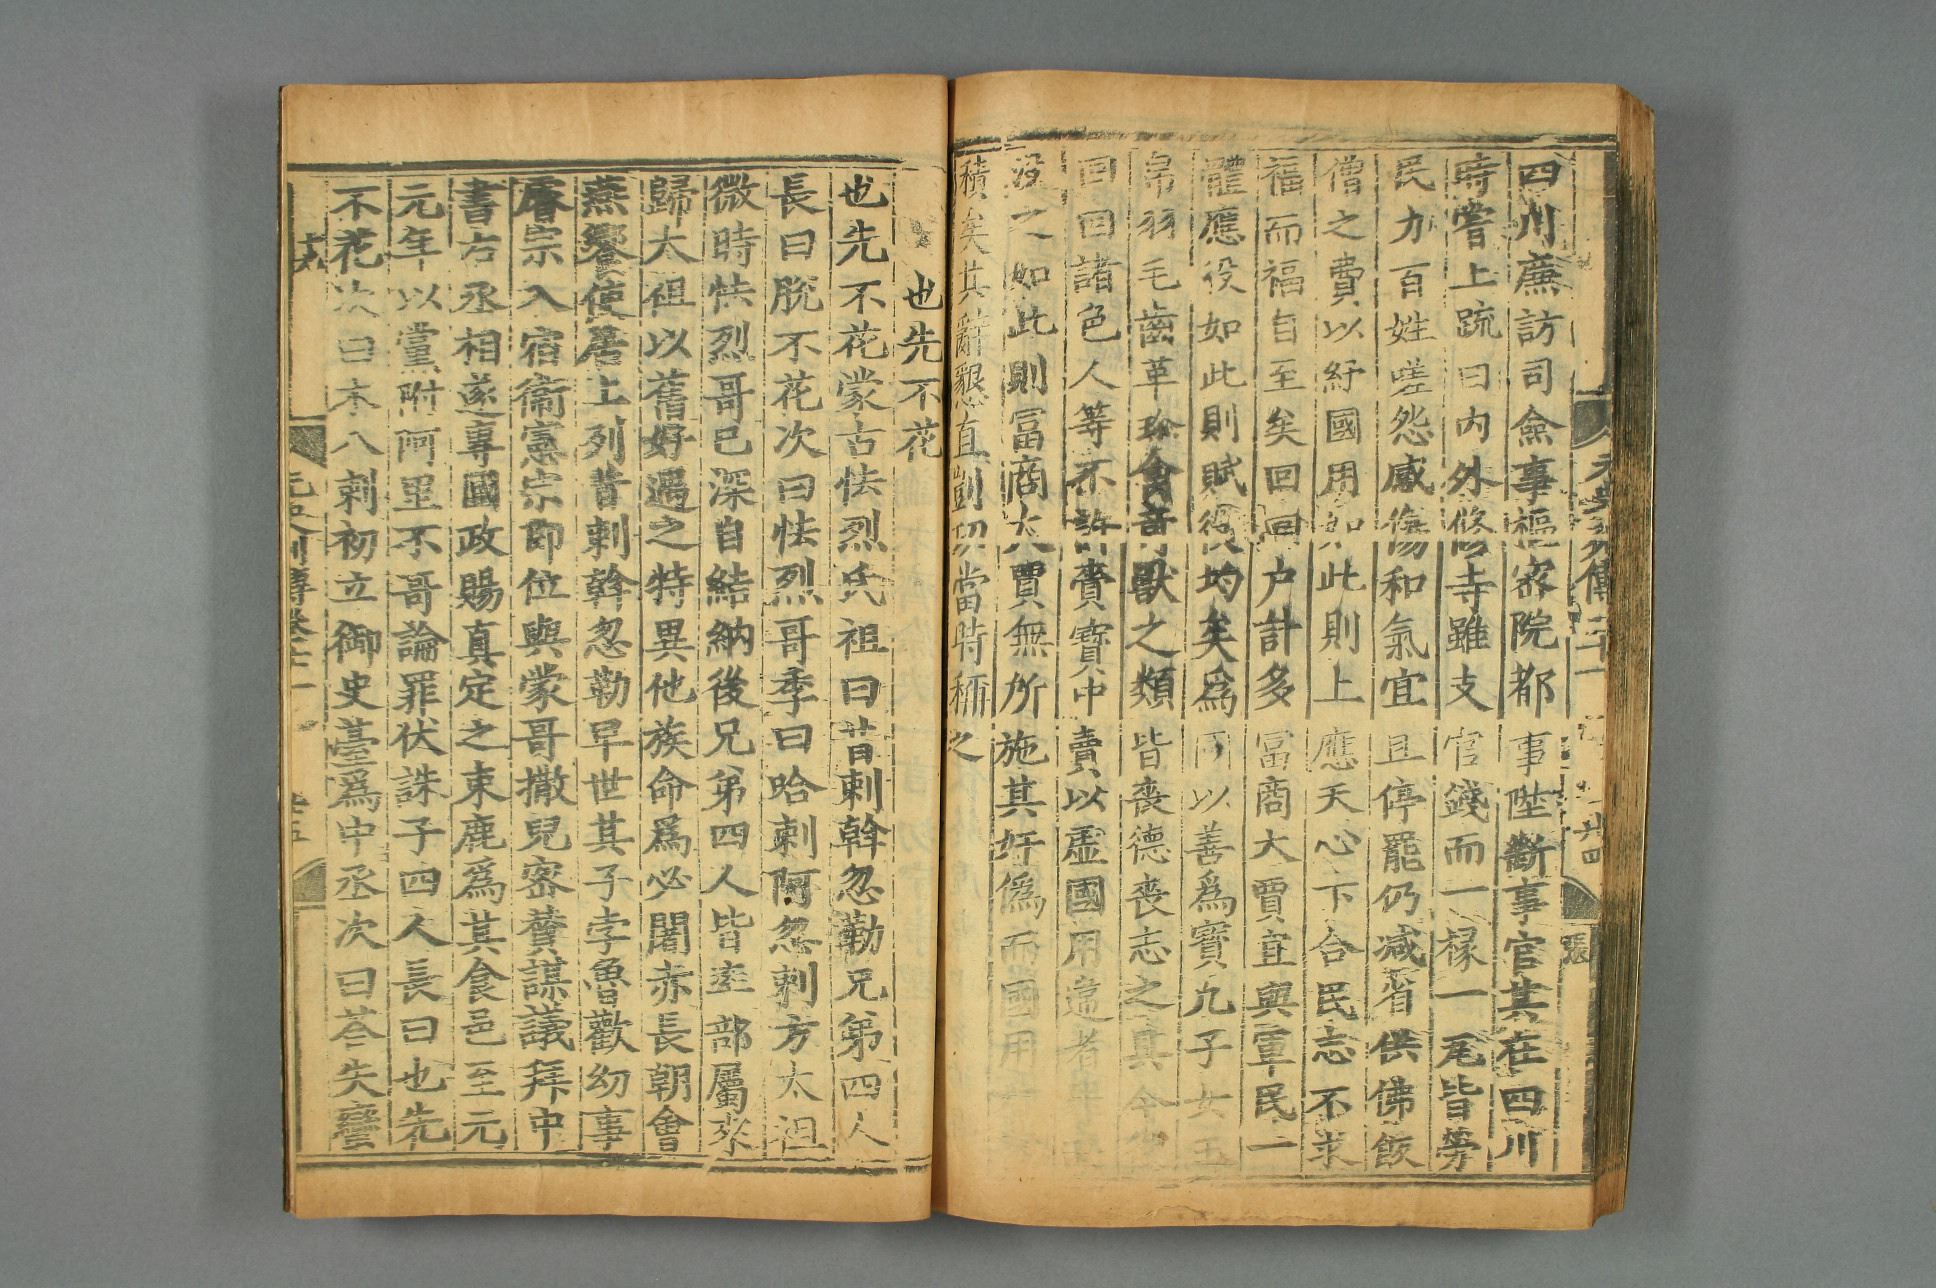 四川廉訪司僉事樞密院都事陞斷事官其在四川
時嘗上疏曰内外修寺雖支官錢而一椽一瓦皆勞
民力百姓嗟怨感傷和氣宜且停罷仍减省供佛飯
僧之費以紓國用如此則上應天心下合民志不求
福而福自至矣回回户計多富商大賈宜與軍民一
體應役如此則賦役均矣爲國以善爲寳凡子女玉
帛羽毛齒革珍禽奇獸之類皆喪德喪志之具今
回回諸色人等不許賫寳中賣以虚國用違者
没之如此則富商大賈無所施其奸僞而國用
積矣其辭懇直剴切當時稱之
也先不花
也先不花蒙古怯烈氏祖曰昔剌斡忽勒兄弟四人
長曰脱不花次曰怯烈哥季曰哈剌阿忽剌方太祖
微時怯烈哥已深自結納後兄弟四人皆率部屬來
歸太祖以舊好遇之特異他族命爲必闍赤長朝會
燕饗使居上列昔剌斡忽勒早世其子孛魯歡幼事
睿宗入宿衞憲宗即位與蒙哥撒兒密賛謀議拜中
書右丞相遂專國政賜真定之束鹿爲其食邑至元
元年以黨附阿里不哥論罪伏誅子四人長曰也先
不花次曰木八剌初立御史臺爲中丞次曰荅失蠻